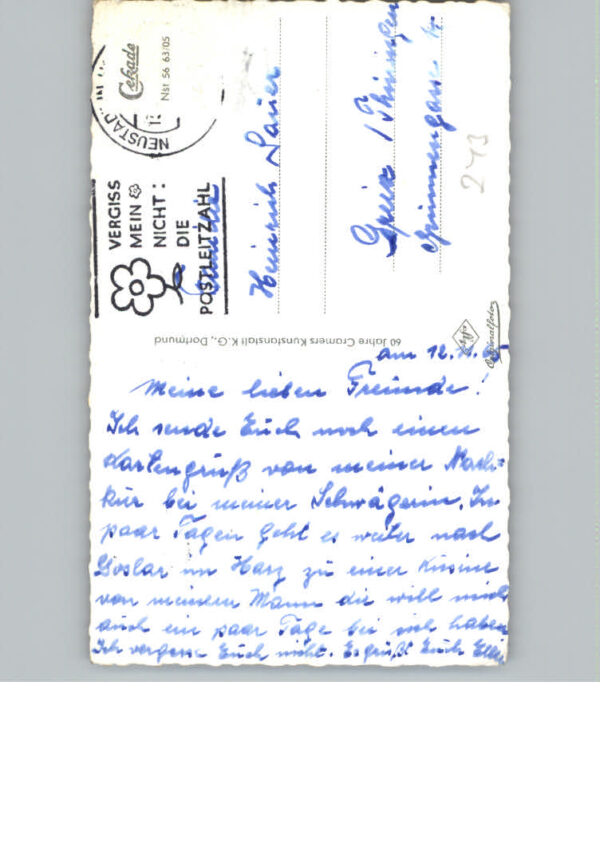 Cekade
Nst 56 63/05
NEUSTADT
VERGISS
MEIN
NICHT:
DIE
POSTLEITZAHL
Familie
Heinrich Sauer
Greiz / Thüringen
243
60 Jahre Cramers Kunstanstalt K.G., Dortmund
Agfa
Originalfoto
am 12.
Meine lieben Freunde!
Ich sende Euch noch einen
Kartengruß von meiner Nach-
kur bei meiner Schwägerin. In
paar Tagen geht es weiter nach
Goslar im Harz zu einer Kusine
von meinem Mann die will mich
auch ein paar Tage bei sich haben
Ich vergesse Euch nicht. Es grüßt Euch